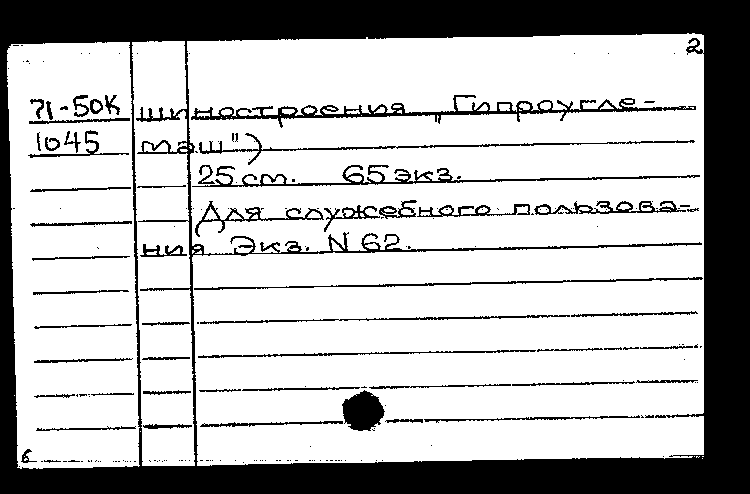 2
71-50К шиностроения „Гипроугле-
1045 маш")
25 см. 65 экз.
Для служебного пользова-
ния Экз. N 62.
6